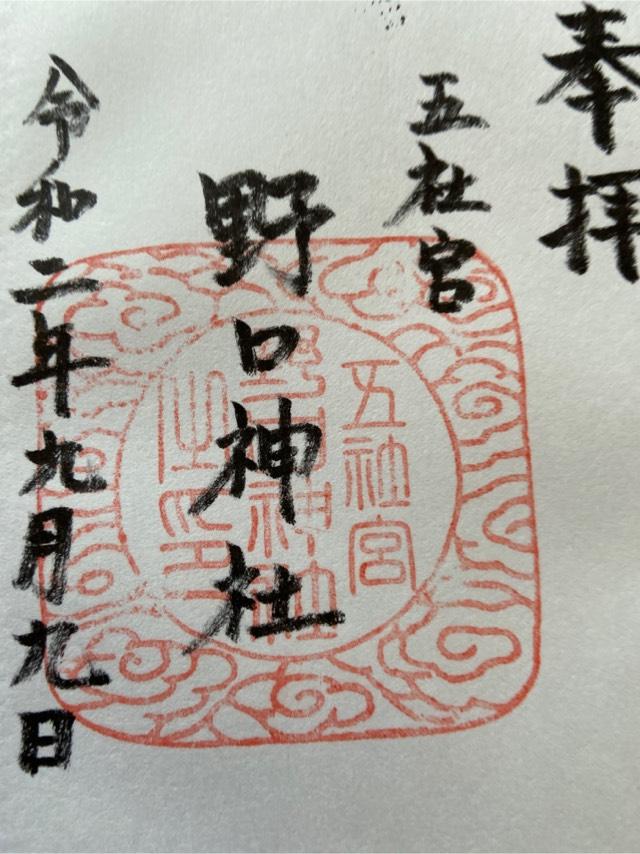 奉拝
五社宮
野口神社
令和二年九月九日
五社宮
野口神社
之印